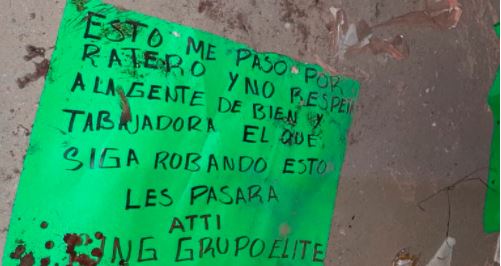 ESTO ME PASO POR
RATERO Y NO RESPETA
A LA GENTE DE BIEN Y
TABAJADORA EL QUE
SIGA ROBANDO ESTO
LES PASARA
ATTI
NG GRUPO ELITE